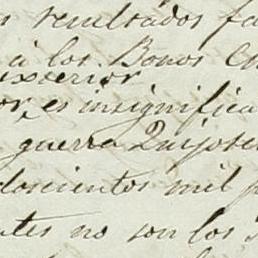 s resultados fa
á los Bonos en
exterior
or, es insignifica
guerra Quijose
doscientos mil p
tes no son los